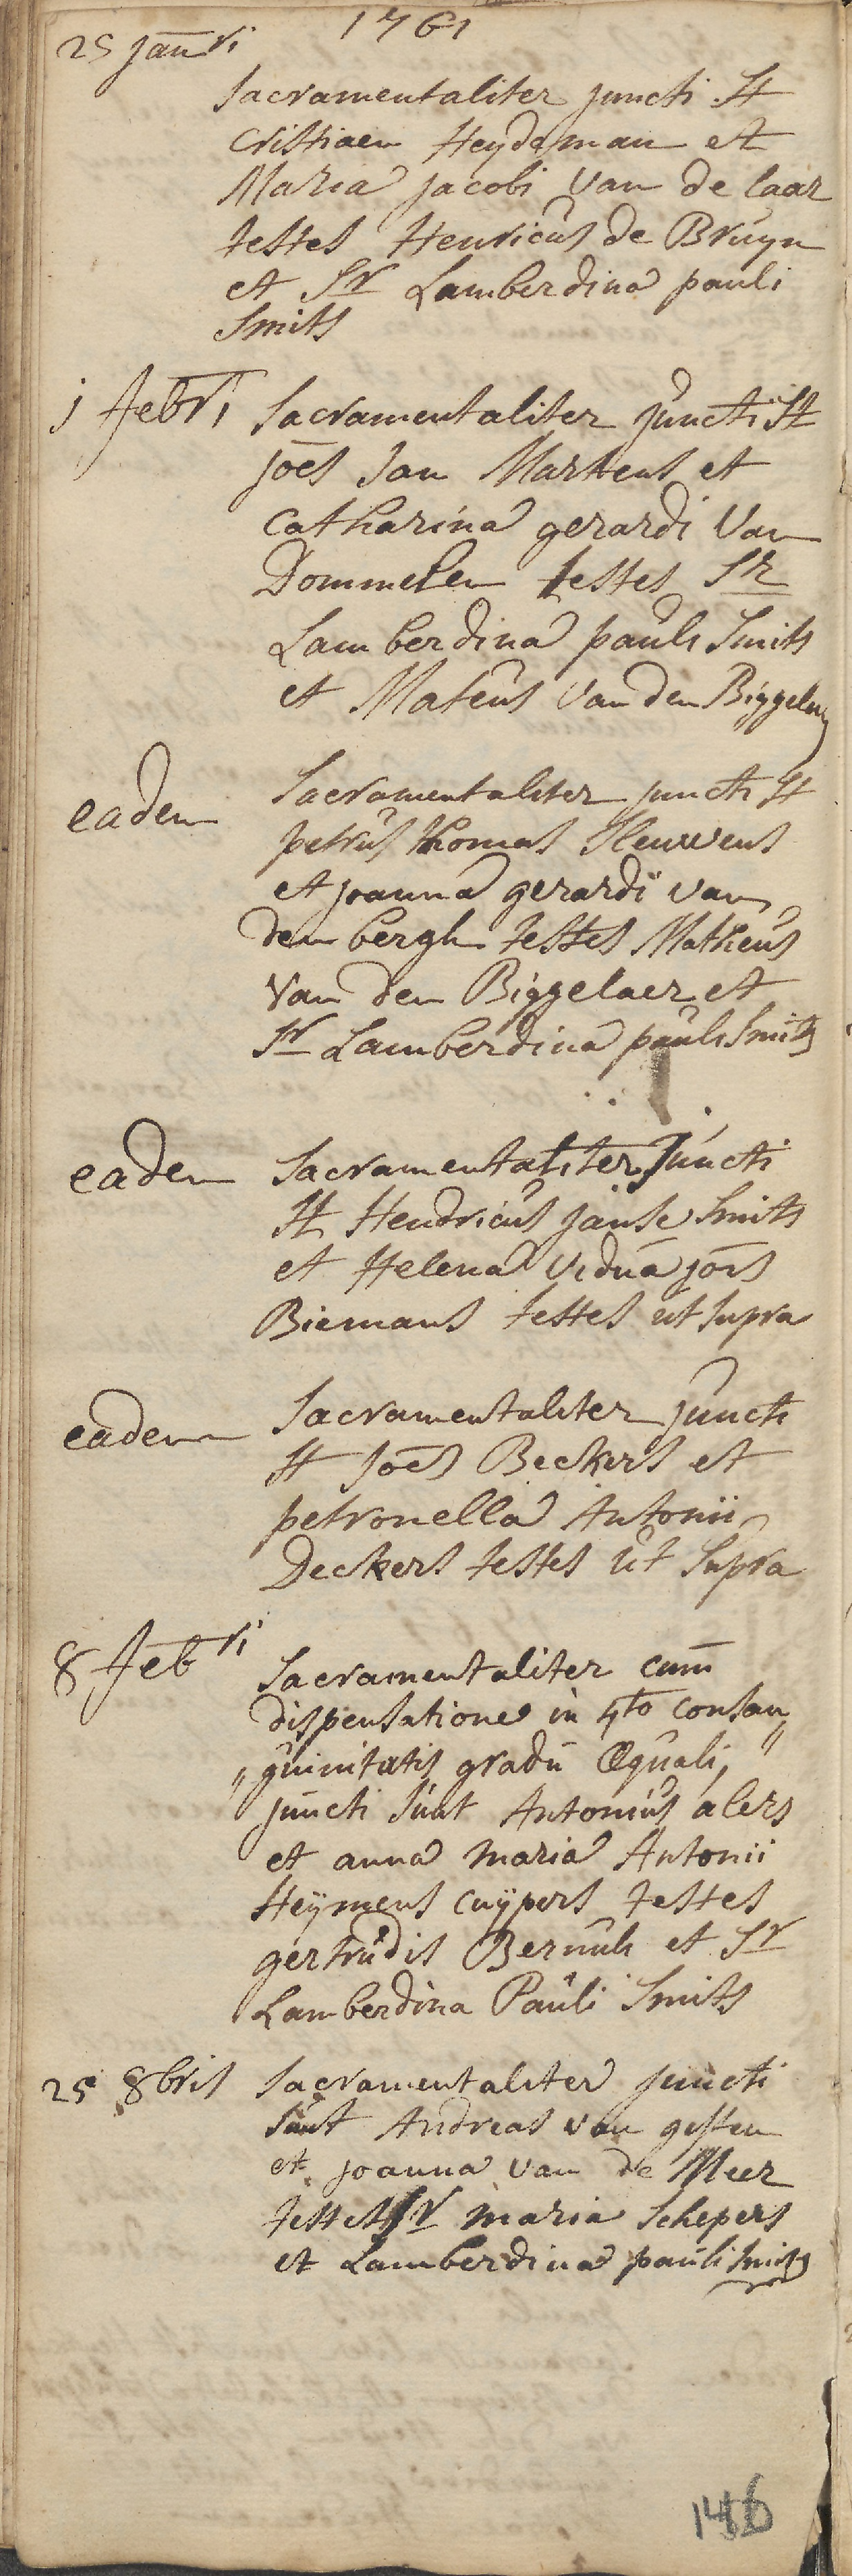 1761
25 janri
Sacramentaliter juncti st
Cristiaen Heydeman et
Maria jacobi Van de laar
testes Henricus de Bruyn
et Sr Lamberdina pauli
Smits
j febri Sacramentaliter juncti st
joēs Jan Martens et
Catharina gerardi Van
Dommelen testes Sr
Lamberdina pauli Smits
et Mateus Van den Biggelaer
eadem Sacramentaliter juncti st
petrus thomas
et joanna gerardi van
den bergh testes Matheus
Van den Biggelaer et
Sr Lamberdina pauli Smits
eadem Sacramentaliter juncti
st Hendricus janse Smits
et Helena vidua joīs
Biemans testes ut supra
eadem Sacramentaliter juncti
st joēs Beckers et
petronella Antonii
Deckers testes ut supra
8 febri Sacramentaliter cum
dispensatione in 4to consan„
„guinitatis gradu Æquali,
juncti sunt Antonius alers
et anna maria Antonii
Heymens cuypers testes
gertrudis et Sr
Lamberdina Pauli Smits
25 8bris Sacramentaliter juncti
sunt Andreas van geffen
et joanna van de Meer
testes Sr maria Schepers
et Lamberdina pauli Smits
146